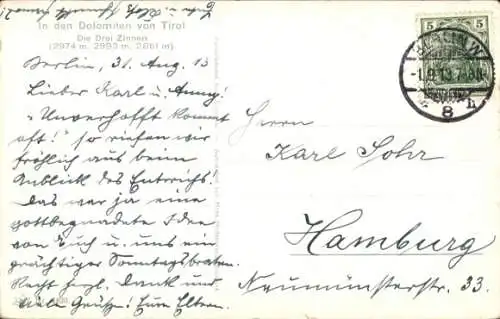 In den Dolomiten von Tirol
Die Drei Zinnen
(2974 m, 2993 m, 2861 m)
Berlin, 31. Aug. 13
Lieber Karl u. Anny!
"Unverhofft kommt
oft!" so riefen wir
fröhlich aus beim
Anblick des Enterichs!
Das war ja eine
gottbegnadete Idee
von Euch u. uns ein
prächtiger Sonntagsbraten.
Recht herzl. Dank und
viele Grüße! Eure Eltern.
5 5
BERLIN W
-1.9.13.7-8
8
Herrn
Karl Sohr
Hamburg
Neumünsterstr. 33.